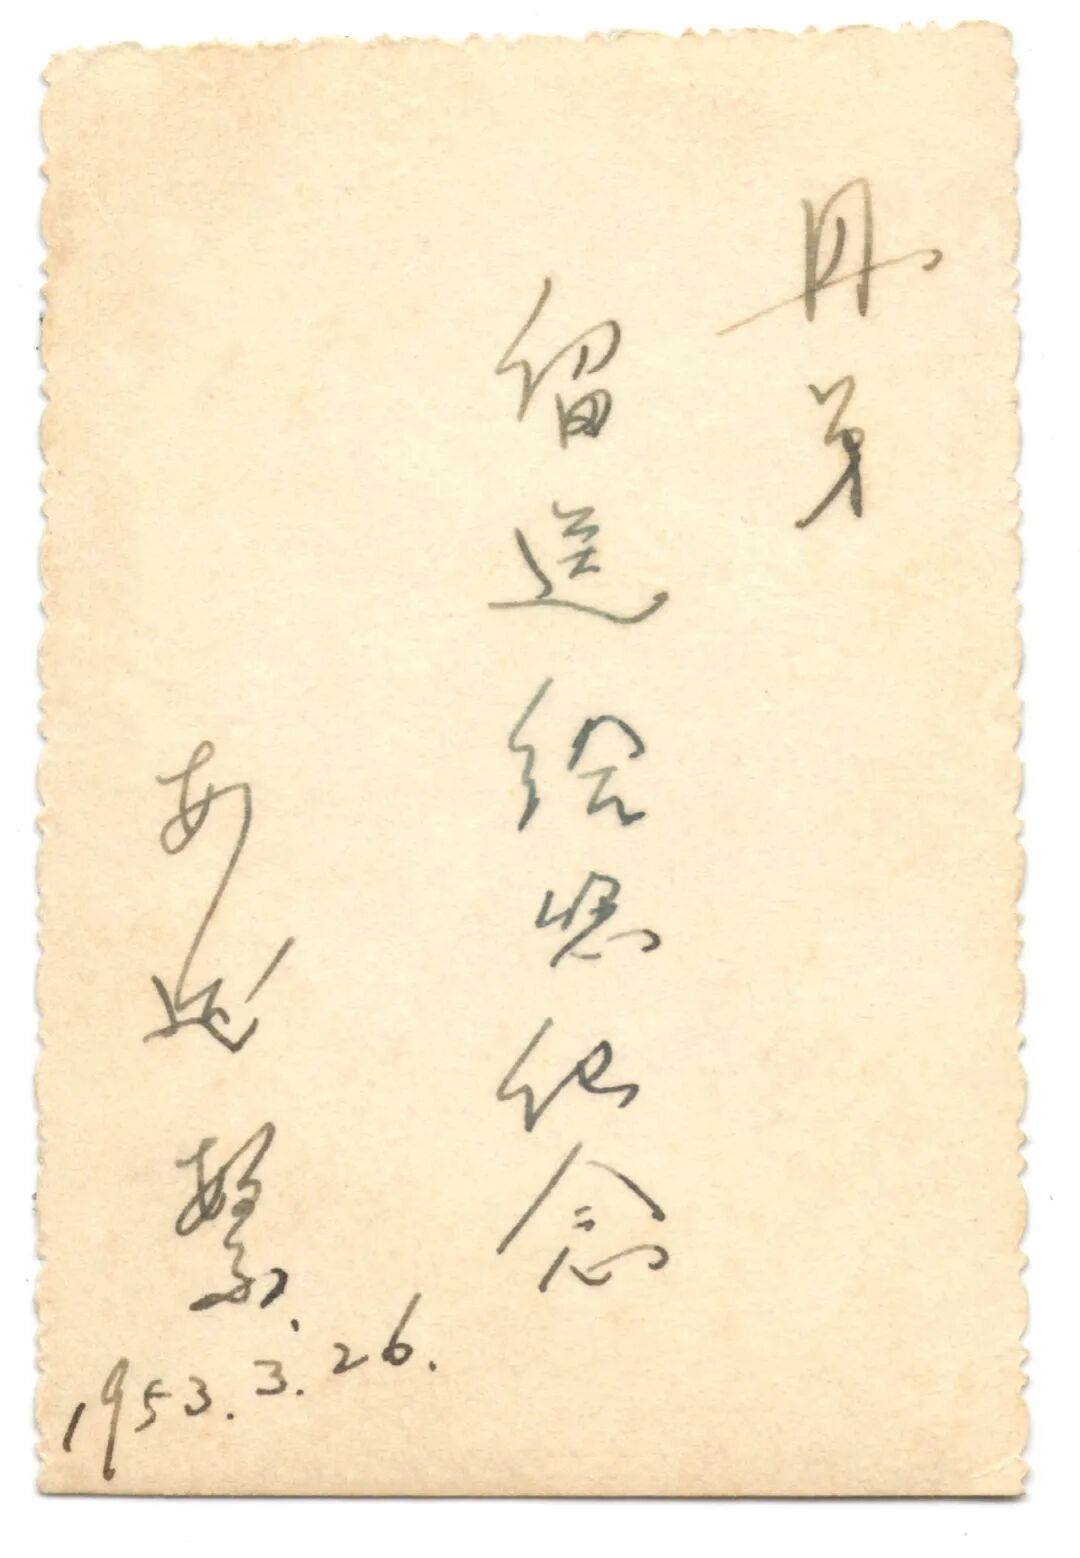 丹弟
留送给您纪念
繁
1953.3.26.